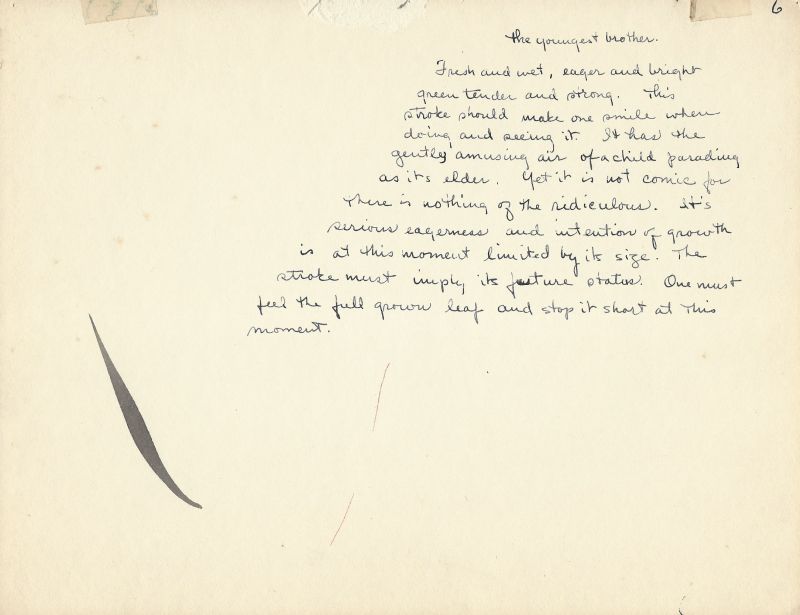 6
the youngest brother.
Fresh and wet, eager and bright
green tender and strong. This
stroke should make one smile when
doing and seeing it. It has the
gently amusing air of a child parading
as its elder. Yet it is not comic for
there is nothing of the ridiculous. It's
serious eagerness and intention of growth
is at this moment limited by its size. The
stroke must imply its future status. One must
feel the full grown leaf and stop it short at this
moment.